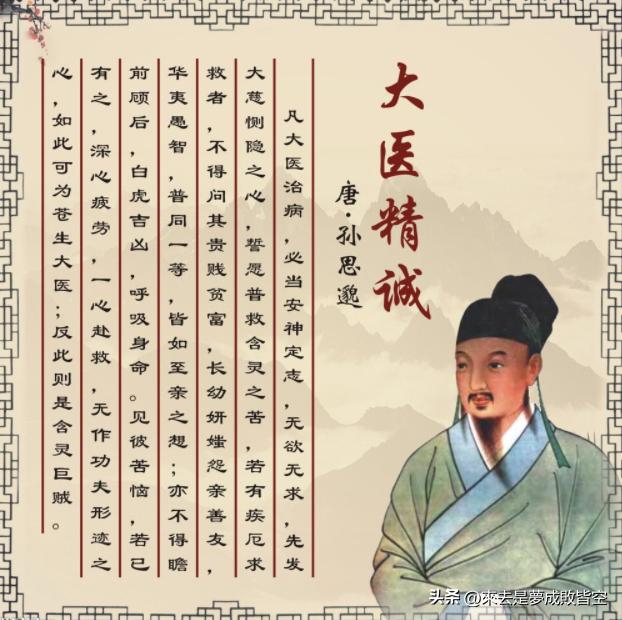 大医精诚
唐·孙思邈
凡大医治病，必当安神定志，无欲无求，先发
大慈恻隐之心，誓愿普救含灵之苦，若有疾厄求
救者，不得问其贵贱贫富，长幼妍媸怨亲善友，
华夷愚智，普同一等，皆如至亲之想；亦不得瞻
前顾后，白虎吉凶，呼吸身命。见彼苦恼，若已
有之，深心疲劳，一心赴救，无作功夫形迹之
心，如此可为苍生大医；反此则是含灵巨贼。
头条 @來去是夢成敗皆空